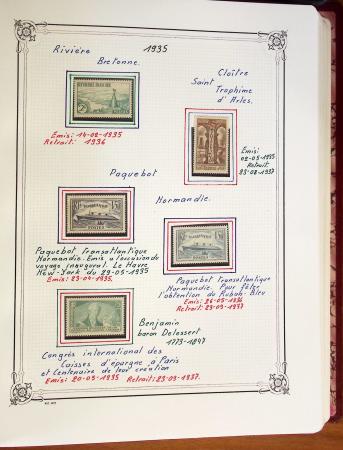 Rivière
Bretonne.
1935
Cloître
Saint Trophime
d'Arles.
Emis: 14-02-1935
Retrait: 1936
Emis:
02-05-1935
Retrait:
Paquebot
Normandie.
Paquebot transatlantique
Normandie. Emis à l'occasion du
voyage inaugural. Le Havre
New-York du 29-05-1935
Emis: 23-04-1935.
Paquebot transatlantique
Normandie. Pour fêter
l'obtention du Ruban-Bleu
Retrait:
Benjamin
baron Delessert
1773-1847
Congrès international des
Caisses d'épargne à Paris
et Centenaire de leur création
Emis: 20-05-1935 Retrait: 23-09-1937.